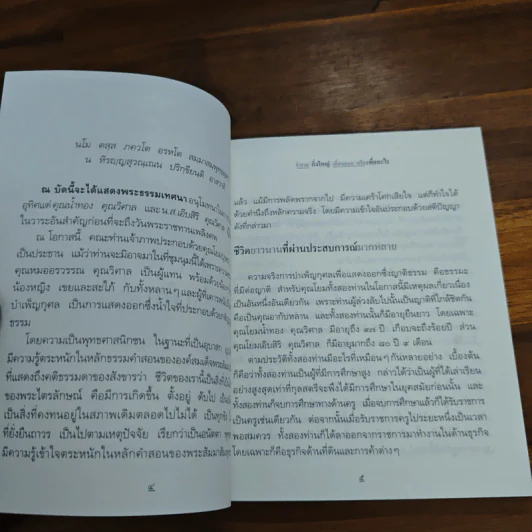 นโม ตสฺส ภควโต อรหโต สมฺมาสมฺพุทฺธสฺส
น หิรญฺญสุวณฺเณน ปริกฺขียนฺติ อาสวา
ณ บัดนี้จะได้แสดงพระธรรมเทศนา อนุโมทนาใน
อุทิศแด่ คุณน้ำทอง คุณวิศาล และ น.ส.เอิบสิริ คุณวิศาล
ในวาระอันสำคัญก่อนที่จะถึงวันพระราชทานเพลิงศพ
ณ โอกาสนี้ คณะท่านเจ้าภาพประกอบด้วยคุณโยม
เป็นประธาน แม้ว่าท่านจะมิอาจมาในที่ชุมนุมนี้ได้เพราะ
คุณหมออรวรรณ คุณวิศาล เป็นผู้แทน พร้อมด้วยพี่
น้องหญิง เขยและสะใภ้ กับทั้งหลานๆ และผู้ที่เคารพ
บำเพ็ญกุศล เป็นการแสดงออกซึ่งน้ำใจที่ประกอบด้วย
ธรรม
โดยความเป็นพุทธศาสนิกชน ในฐานะที่เป็นอุบาสก
มีความรู้ตระหนักในหลักธรรมคำสอนขององค์สมเด็จพระ
ที่แสดงถึงคติธรรมดาของสังขารว่า ชีวิตของเรานี้เป็นสิ่ง
ของพระไตรลักษณ์ คือมีการเกิดขึ้น ตั้งอยู่ ดับไป
เป็นสิ่งที่คงทนอยู่ในสภาพเดิมตลอดไปไม่ได้ เป็นทุกข์
ที่ยั่งยืนถาวร เป็นไปตามเหตุปัจจัย เรียกว่าเป็นอนัตตา
มีความรู้เข้าใจตระหนักในหลักคำสอนของพระสัมมาสัมพุทธ
๔
ยิ่งใหญ่
แล้ว แม้มีการพลัดพรากจากไป มีความเศร้าโศกเสียใจ แต่ก็ทำใจได้
ด้วยคำนึงถึงหลักความจริง โดยมีความเข้าใจอันประกอบด้วยสติปัญญา
ดังที่กล่าวมา
ชีวิตยาวนานที่ผ่านประสบการณ์มากหลาย
ความจริงการบำเพ็ญกุศลเพื่อแสดงออกซึ่งญาติธรรม คือธรรมะ
ที่มีต่อญาติ สำหรับคุณโยมทั้งสองท่านในโอกาสนี้มีเหตุผลเกี่ยวเนื่อง
เป็นอันหนึ่งอันเดียวกัน เพราะท่านผู้ล่วงลับไปนั้นเป็นญาติใกล้ชิดกัน
คือเป็นคุณอากับหลาน และทั้งสองท่านนั้นก็มีอายุยืนยาว โดยเฉพาะ
คุณโยมน้ำทอง คุณวิศาล มีอายุถึง ๙๗ ปี เกือบจะถึงร้อยปี ส่วน
คุณโยมเอิบสิริ คุณวิศาล ก็มีอายุถึง ๘๐ ปี ๙ เดือน
ตามประวัติทั้งสองท่านมีอะไรที่เหมือนๆ กันหลายอย่าง เบื้องต้น
ก็คือว่าทั้งสองท่านเป็นผู้ที่มีการศึกษาสูง กล่าวได้ว่าเป็นผู้ที่ได้เล่าเรียน
อย่างสูงสุดเท่าที่กุลสตรีจะพึงได้มีการศึกษาในยุคสมัยก่อนนั้น และ
ทั้งสองท่านก็จบการศึกษาทางด้านครู เมื่อจบการศึกษาแล้วก็ได้รับราชการ
เป็นครูเช่นเดียวกัน ต่อจากนั้นเมื่อรับราชการครูไประยะหนึ่งเป็นเวลา
พอสมควร ทั้งสองท่านก็ได้ลาออกจากราชการมาทำงานในด้านธุรกิจ
โดยเฉพาะก็คือธุรกิจด้านที่ดินและการค้าต่างๆ
๕